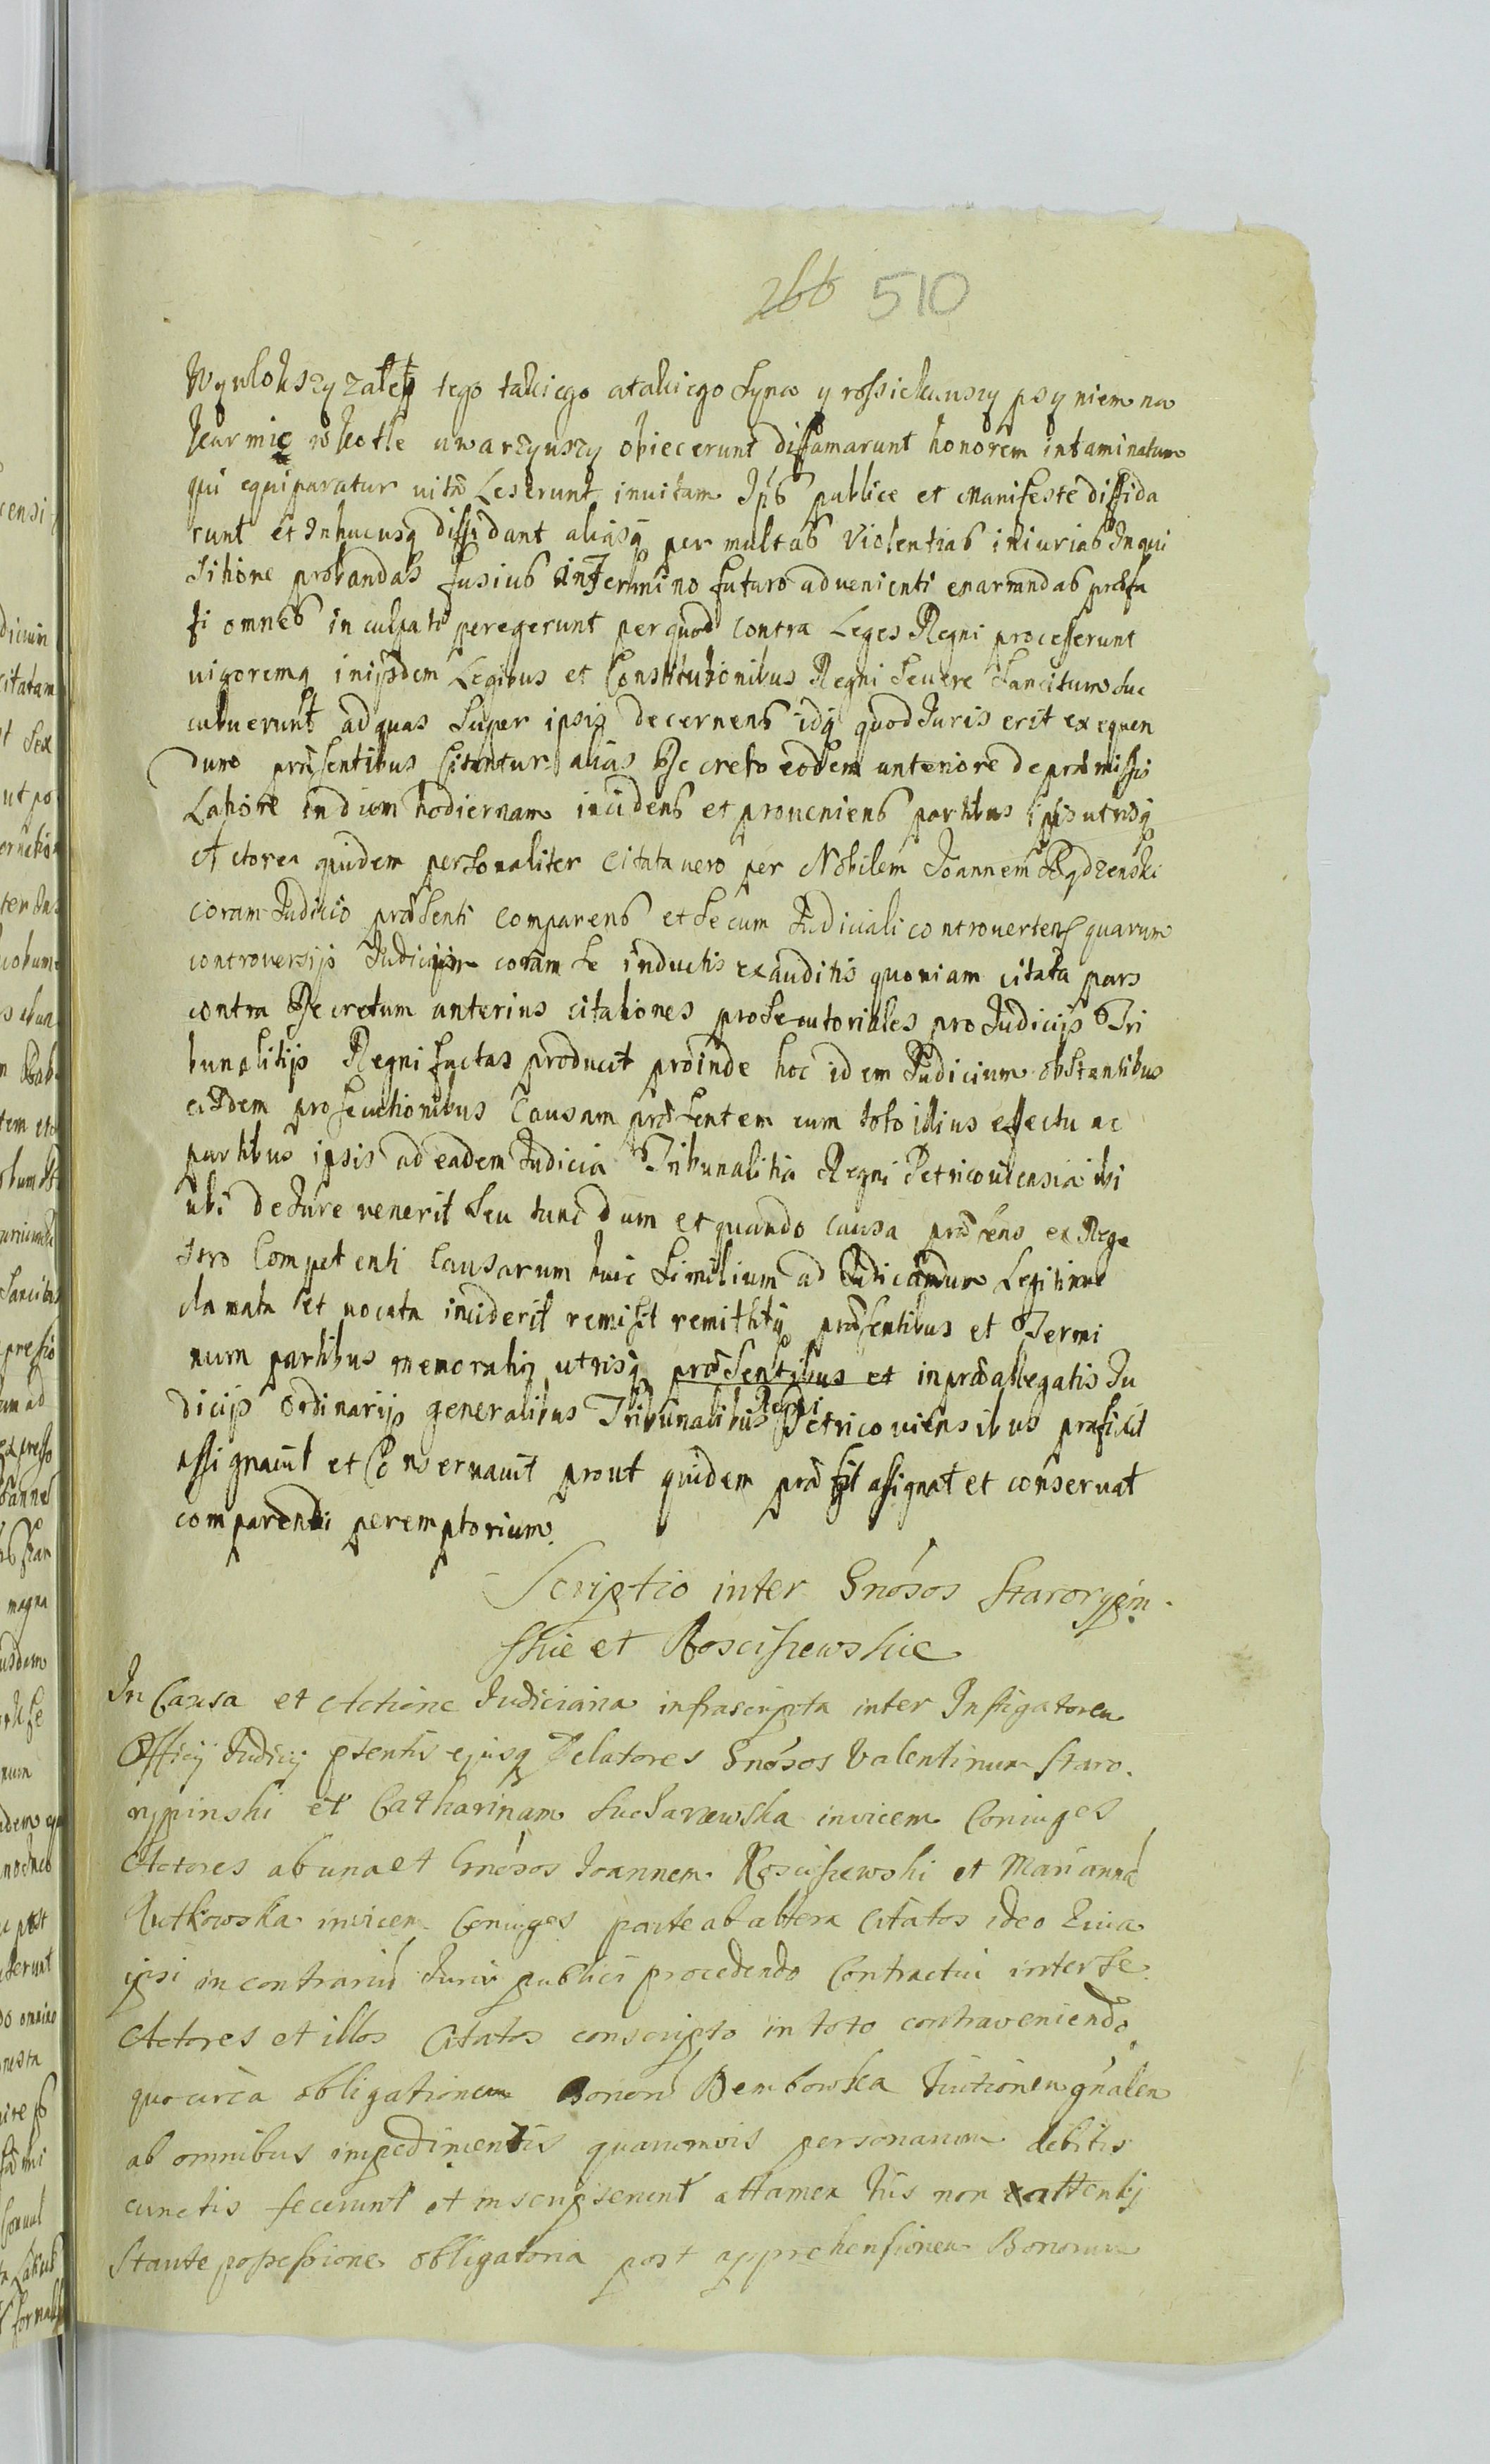 266 510
Wywlokszy zaleb tego takiego atakiego Syna y rossiekauszy psy niem na
karmię w kotle uwarzyuszy obiecerunt diffamarunt honorem intaminatum
qui equiparatur uitæ Leserunt inuitam Ipīs publice et manifeste diffida
runt et Inhucusq diffidant aliasq per multas Violentias iniurias Inqui
sitione probandas fusius inTermino futuro aduenienti enarrandas præfa
ti omnes inculpati peregerunt per quod contra Leges Regni processerunt
uigoremq inijsdem Legibus et Constitutionibus Regni Seuere Sancitum Suc
cubuerunt ad quas Super ipsiq decernens idq quod Juris erit exequen
dum præsentibus Citantur alias Decreto eodem anteriore de præmissis
Latione indiem hodiernam incidens et proueniens partibus ipsis utrisq
Actorea quidem personaliter Citata uero per Nobilem Joannem Rydzenski
coram Judicio præsenti comparens et Secum Judiciali controuertens quarum
controuersijs Judicium coram Se inductis exauditis quoniam citata pars
contra Decretum anterius citationes prosecutoriales pro Judicijs Tri
bunalitijs Regni factas producit proinde hoc idem Judicium obstantibus
eisdem prosecutionibus Causam præsentem cum toto illius effectu ac
partibus ipsis ad eadem Judicia Tribunalitia Regni Petricouiensia ibi
ubi deJure uenerit Seu tunc dum et quando causa præsens ex Rege
stro Competenti Causarum huic Similium ad Judicandum Legitime
clamata et uocata inciderit remisit remittitq præsentibus et Termi
num partibus memoratiq utrisq præsentibus et inpræallegatis Ju
dicijs Ordinarijs generalibus Tribunalibus Regni Petricouiensibus præfixit
assignauit et Conseruauit prout quidem præfigit assignat et conseruat
comparendi peremptorium.
Scriptio inter Gnósos Starorypin
skie et Roscisrewskie
In Causa et Actione Judiciaria infrascripta inter Instigatorem
Officij Judicij pśentis ejusq Delatores Gnósos Valentinum Staro.
rypinski et Catharinam Suchrzewska invicem Coniuges
Actores ab una et Gnósos Joannem Roscisrewski et Mariannā
Rutkowska invicem Coniuges parte ab altera Citatos ideo Quia
ipsi in contrariū Juris publici procedendo Contractui inter Se
Actores et illos Citatos conscripto in toto contraveniendo
quo circa obligationem Bonorū Bembowska Tuitionem gnālem
ab omnibus impedimentis quarumvis personarum debitis
cunctis fecerunt et inscripserunt attamen his non attentij
Stante possessione obligatoria post apprehensionem Bonorum